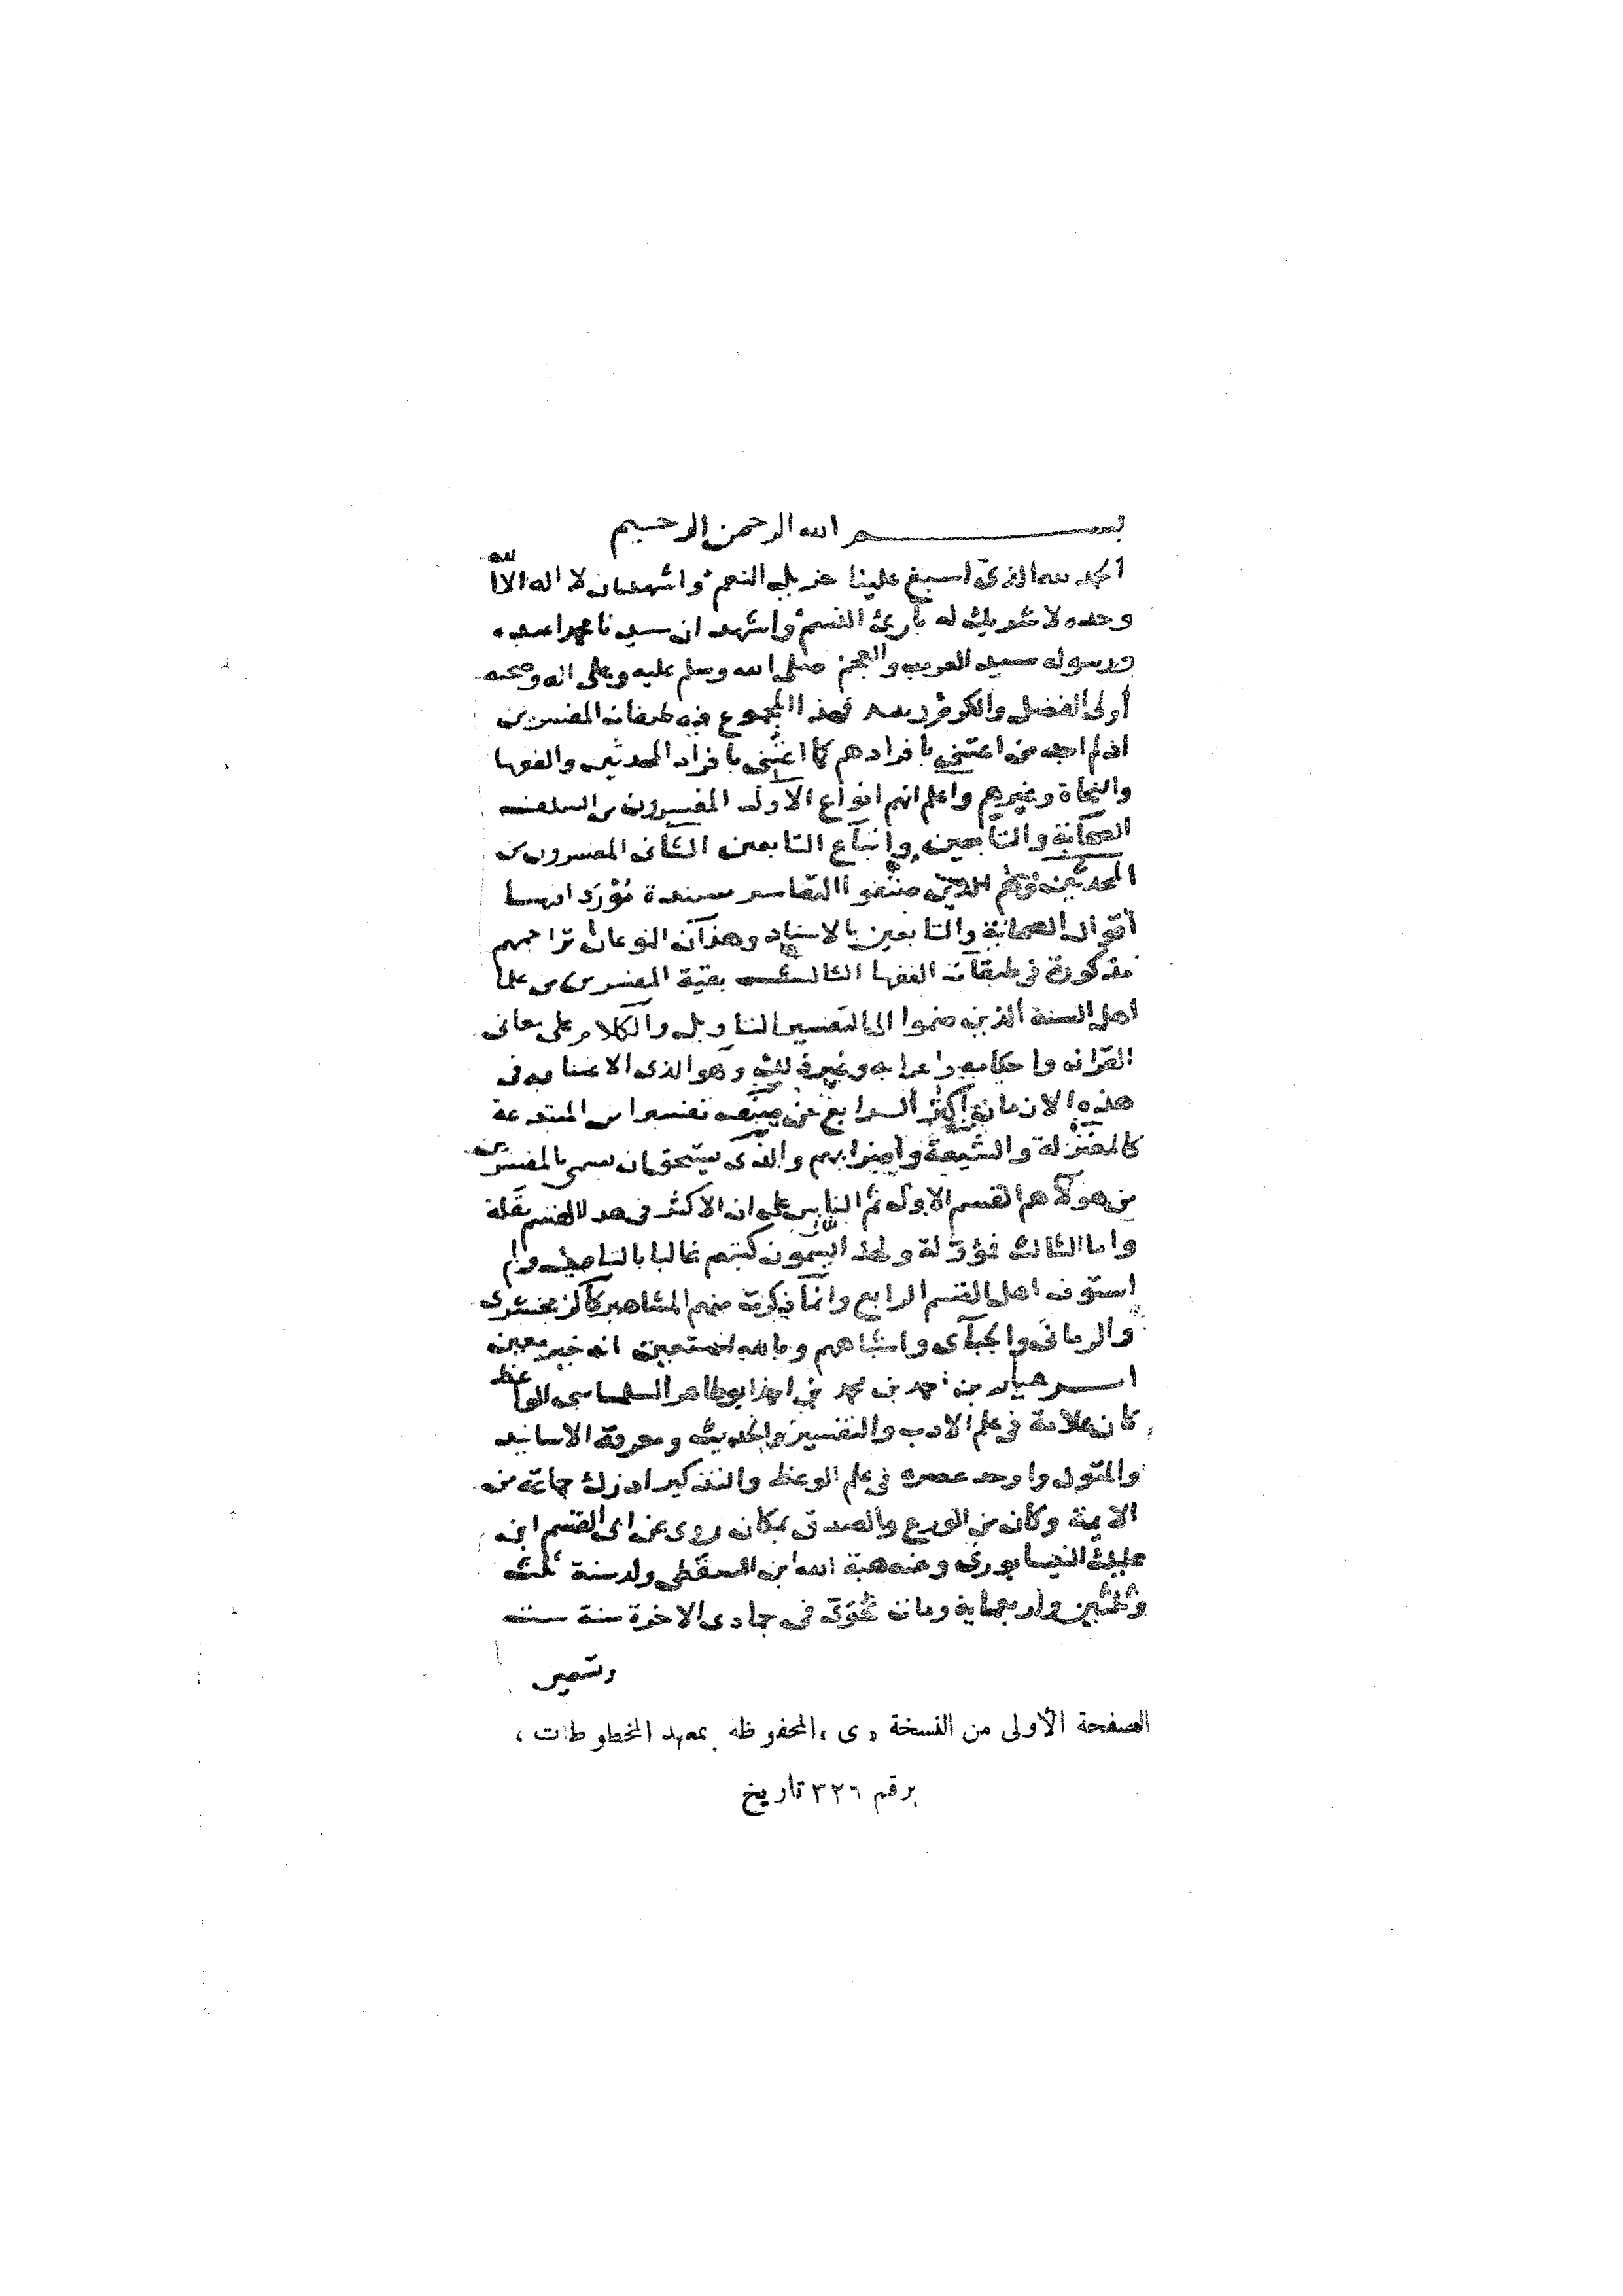 بسم الله الرحمن الرحيم
الحمد لله الذى اسبغ علينا جزيل النعم واشهد ان لا اله الا الله
وحده لا شريك له بارئ النسم واشهد ان سيدنا محمدا عبده
ورسوله سيد العرب والعجم صلى الله وسلم عليه وعلى اله وصحبه
أولى الفضل والكرم وبعد فهذا المجموع فيه طبقات المفسرين
اذ لم اجد من اعتنى بافرادهم كما اعتنى بافراد المحدثين والفقها
والنحاة وغيرهم واعلم انهم انواع الاول المفسرون من السلف
الصحابة والتابعين واتباع التابعين الثانى المفسرون من
المحدثين وهم الذين صنفوا التفاسير مسندة مورد افيها
أقوال الصحابة والتابعين بالاسناد وهذان النوعان تراجمهم
مذكورة فى طبقات الفقها الثالث بقية المفسرين من علما
اهل السنة الذين ضموا الى التفسير التاويل والكلام على معانى
القران واحكامه واعرابه وغير ذلك وهو الذى الاعتنا به فى
هذه الازمان اكثر الرابع من صنف تفسيرا من المبتدعة
كالمعتزلة والشيعة واضرابهم والذى يستحق ان يسمى بالمفسرين
من هولآ هم القسم الاول ثم الثانى على ان الاكثر فى هذا القسم نقلة
واما الثالث فمؤولة ولهذا يسمون كتبهم غالبا بالتاويل ولم
استوف اهل القسم الرابع وانما ذكرت منهم المشاهير كالزمخشرى
والرمانى والجبآى واشباههم وبالله استعين انه خير معين
احمد بن محمد بن احمد ابو طاهر الواعظ
كان علامة فى علم الادب والتفسير والحديث ومعرفة الاسانيد
والمتون واوحد عصره فى علم الوعظ والتذكير ادرك جماعة من
الايمة وكان من الورع والصدق بمكان روى عن ابى القسم ابن
عليك النيسابورى وعنه هبة الله ابن السقطى ولد سنة ثلث
وثلثين واربعماية ومات بخوى فى جمادى الاخرة سنة ست
وتسعين
الصفحة الأولى من النسخة « ى » المحفوظة بمعهد المخطوطات ،
برقم ٣٢٦ تاريخ